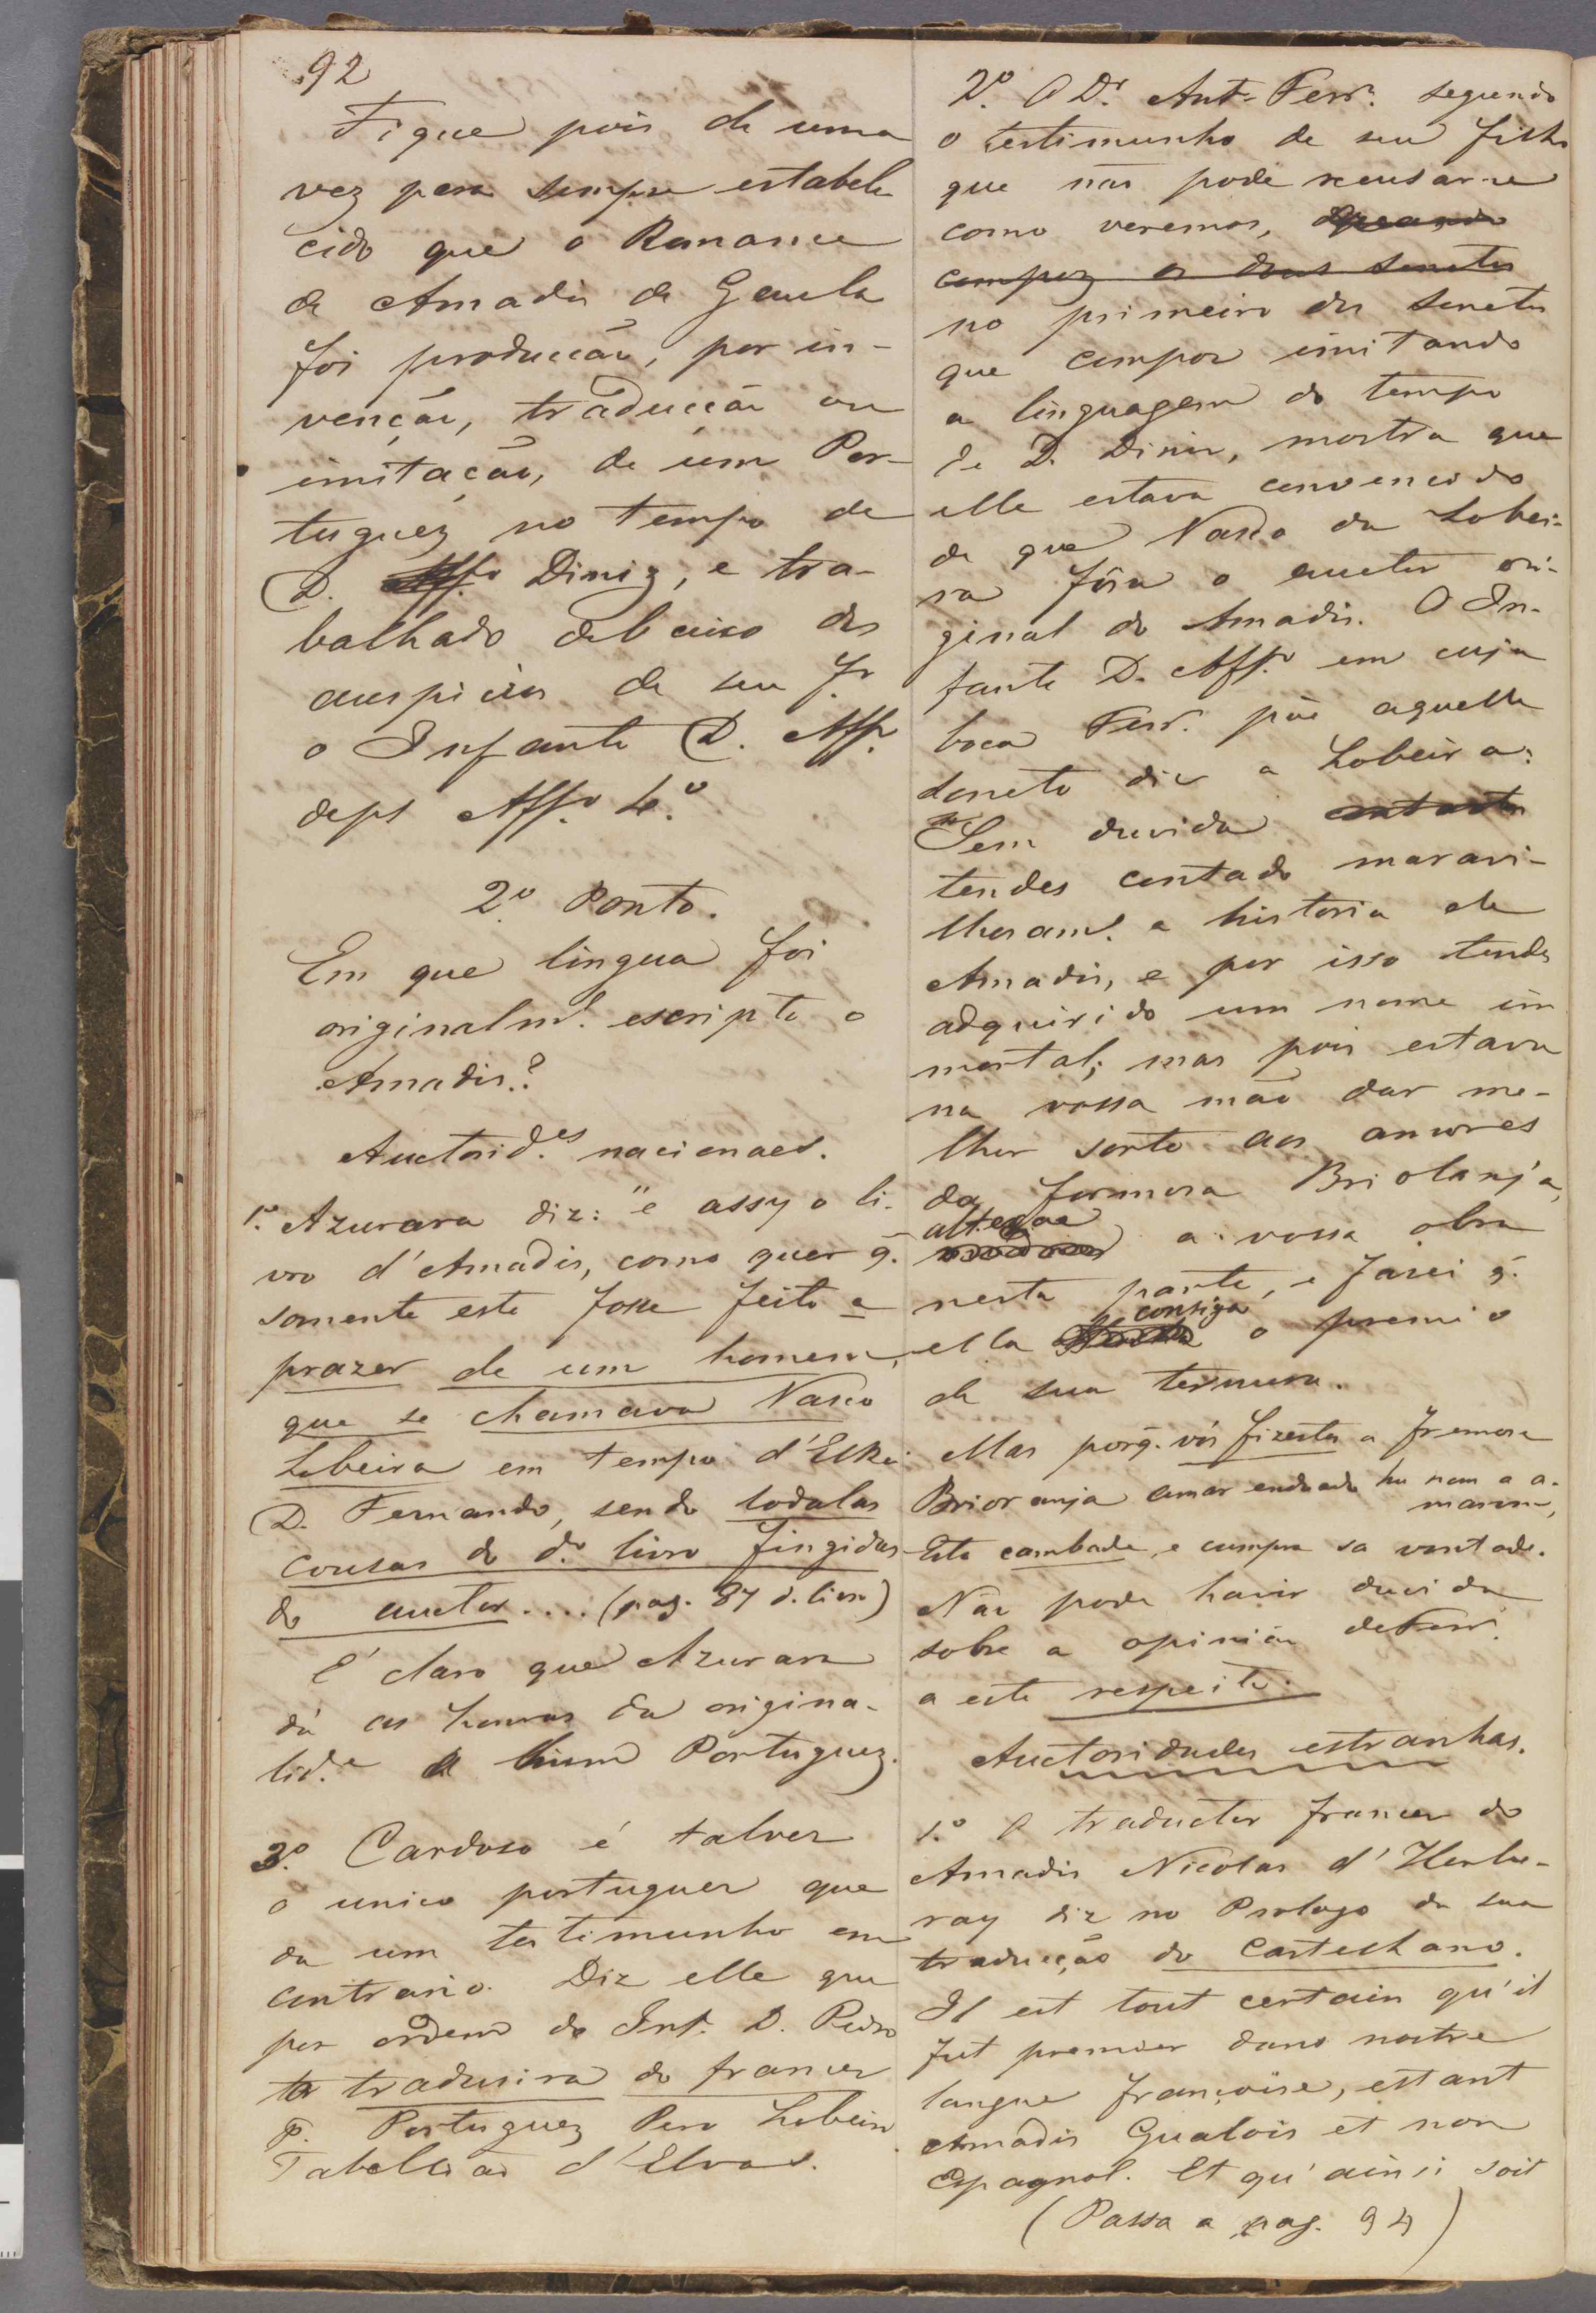 92
Fique pois de uma
vez para sempre estabele
cido que o Romance
de Amadis de Gaula
foi producção, por in-
venção, traducção ou
imitação, de um Por-
tuguez no tempo de
D. Affo. Diniz, e tra-
balhado debaixo dos
auspicios de seu fo.
o Infante D. Affo.
deps Affo. 4.o
2.o Ponto.
Em que lingua foi
originalmte. escripto o
Amadis?
Auctorid.es nacionaes.
1.o Azurara diz: "e assy o li-
vro d'Amadis, como quer q̃.
somente este fosse feito a
prazer de um homem,
que se chamava Vasco
Lobeira em tempo d'ElRei
D. Fernando, sendo todalas
cousas do do. livro fingidas
do auctor.... (pag. 87 d. livro)
E' claro que Azurara
dá as honras da origina-
lid.e a hum Portuguez.
3.o Cardoso é talvez
o unico portuguez que
da um testimunho em
contrario. Diz elle que
por ordem do Inf. D. Pedro
o traduzira do francez
p. Portuguez Pero Lobeiro
Tabelliao d'Elvas.
2.o O Dr. Ant. Ferr. segundo
o testimunho de seu filho
que não pode recusar-se
como veremos, quando
compoz os dous sonetos
no primeiro dos sonetos
que compoz imitando
a linguagem do tempo
de D. Diniz, mostra que
elle estava convencido
de que Vasco da Lobei-
ra fôra o auctor ori-
ginal do Amadis. O In-
fante D. Affo. em cuja
boca Ferr. põe aquelle
soneto diz a Lobeira:
"Sem duvida
tendes contado maravi-
lhosamte. a historia de
Amadis, e por isso tendes
adquirido um nome im
mortal; mas pois estava
na vossa mão dar me-
lhor sorte aos amores
da formosa Briolanja,
alterae
a vossa obra
nesta parte, e fazei q̃.
consiga
ella o premio
de sua ternura.
Mas porq̃. vós fizestes a fremosa
Brioranja amar endoado hu nom a a-
marom,
Esto cambade, e cumpra sa vontade.
Não pode haver duvida
sobre a opinião de Ferr.
a este respeito.
Auctoridades estranhas.
1.o O traductor francez do
Amadis Nicolas d'Herbe-
ray diz no Prologo da sua
traducção do Castelhano.
Il est tout certain qu'il
fut premier dans nostre
langue françoise, estant
Amadis Gualois et non
Espagnol. Et qu'ainsi soit
(Passa a pag. 94)